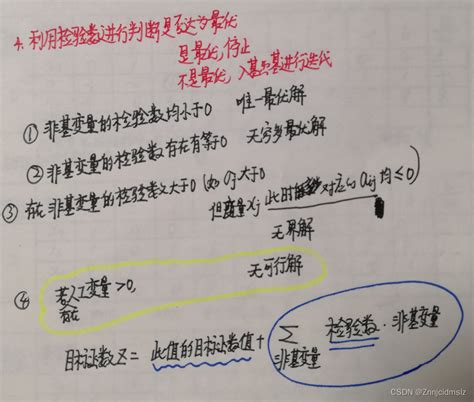 4. 利用检验数进行判断是否达为最优
是最优,停止
不是最优,入基出基进行迭代
① 非基变量的检验数均小于0 唯一最优解
② 非基变量的检验数存在有等于0 无穷多最优解
③ 存在非基变量的检验数大于0 (如 σj大于0
但变量xj 此时的 对应的 aij 均≤0)
无界解
④ 若人工变量>0, 无可行解
存在
目标函数Z = 此值的目标函数值 + ∑ 检验数·非基变量
非基变量
CSDN @Znnjcldmslz